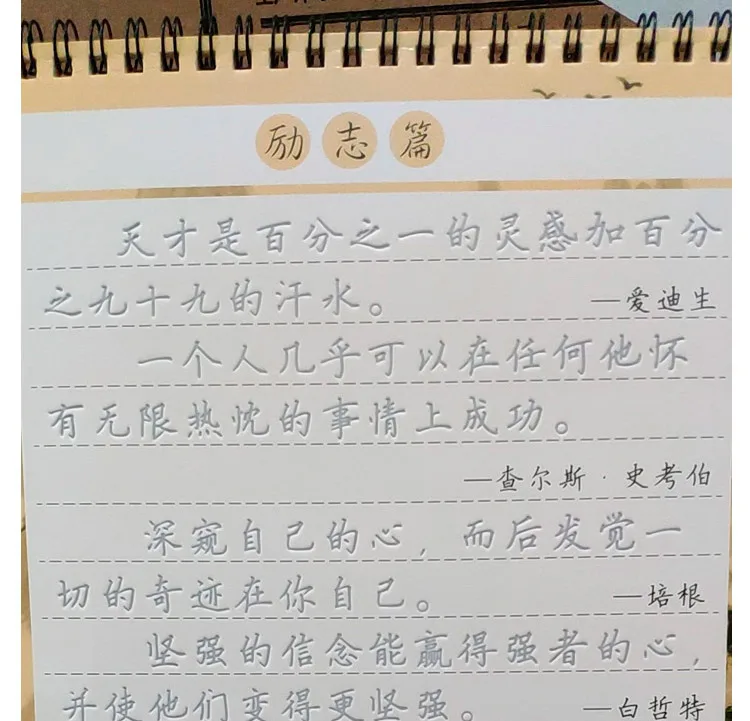 励志篇
天才是百分之一的灵感加百分
之九十九的汗水。 —爱迪生
一个人几乎可以在任何他怀
有无限热忱的事情上成功。
—查尔斯·史考伯
深窥自己的心,而后发觉一
切的奇迹在你自己。 —培根
坚强的信念能赢得强者的心,
并使他们变得更坚强。 —白哲特